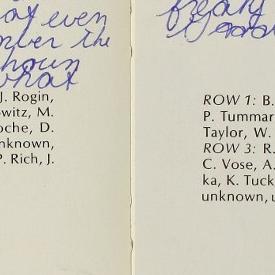 even
the
what
J. Rogin,
witz, M.
oche, D.
nknown,
P. Rich, J.
ROW 1: B.
P. Tummar
Taylor, W.
ROW 3: R.
C. Vose, A.
ka, K. Tuck
unknown, u